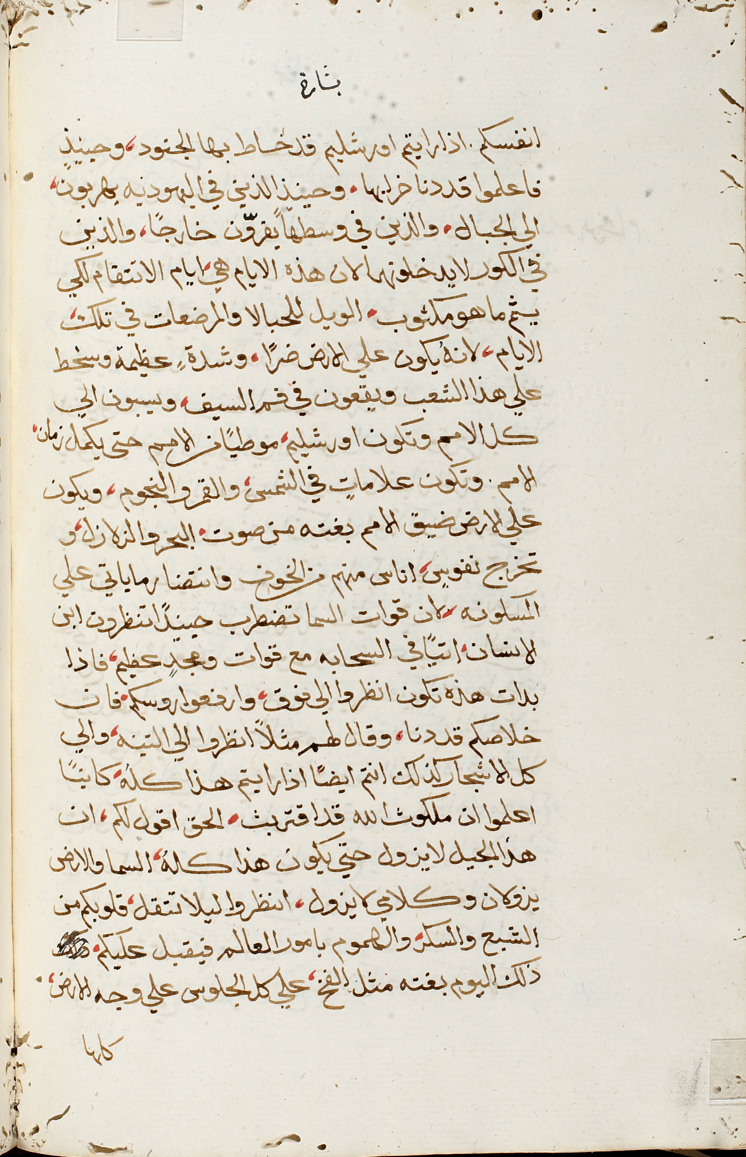 بشارة
انفسكم. اذا رايتم اورشليم قد احاط بها الجنود، وحينيذٍ
فاعلموا قد دنا خرابها، وحينيذ الذين في اليهودية يهربون،
الي الجبال، والذين في وسطها يفرّون خارجًا، والذين
في الكور لا يدخلونها لان هذه الايام هي ايام الانتقام لكي
يتم ما هو مكتوب، الويل للحبالا والمرضعات في تلك
الايام، لانه يكون علي الارض ضرًا، وشدة، عظيمة وسخط
علي هذا الشعب ويقعون في فم السيف، ويسبون الي
كل الامم وتكون اورشليم، موطيًا من الامم حتى يكمل زمان،
الامم. وتكون علامات في الشمس، والقمر والنجوم، ويكون
علي الارض ضيق الامم بغته من صوت، البحر والزلازل، و
تخرج نفوس، اناس منهم من الخوف وانتضار ما ياتي علي
المسكونه، لان قوات السما تضطرب حينيذًا تنظرون ابن
الانسان، اتيًا في السحابه مع قوات ومجدٍ عظيم، فاذا
بدات هذه تكون انظروا الي فوق، وارفعوا روسكم، فان
خلاصكم قد دنا، وقال لهم مثلاً انظروا الي التينه، والي
كل الاشجار كذلك انتم ايضًا اذا رايتم هذا كله، كاينًا
اعلموا ان ملكوت الله قد اقتربت، الحق اقول لكم، ان
هذا الجيل لا يزول حتي يكون هذا كله، السما والارض
يزولان وكلامي لا يزول، انظروا ليلا تتقل، قلوبكم من
الشبع والسكر، والهموم بامور العالم فيقبل عليكم،
ذلك اليوم بغته مثل الفخ، علي كل الجلوس علي وجه الارض،
كلها